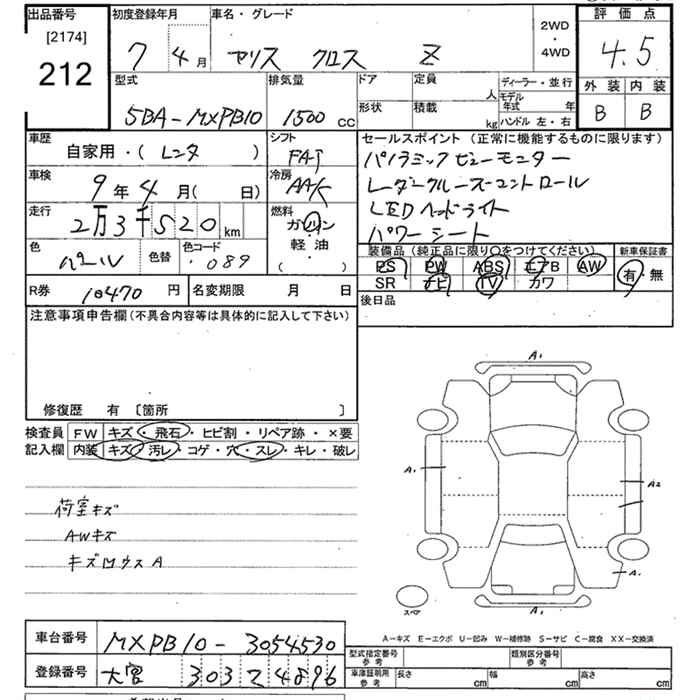 出品番号 初度登録年月 車名・グレード 2WD・4WD 評価点
[2174]
212 7 4月 ヤリス クロス Z 4.5
型式 排気量 ドア 定員 人 ディーラー・並行 外装 内装
5BA-MXPB10 1500 CC 形状 積載 kg モデル年式 年 ハンドル 左・右 B B
車歴 シフト セールスポイント (正常に機能するものに限ります)
自家用・( レンタ ) FAT パノラミックビューモニター
車検 冷房 レーダークルーズコントロール
9年4月( 日) AAC LEDヘッドライト
走行 燃料 パワーシート
2万3千520km ガソリン
軽・油
( )
色 色替 色コード 装備品 (純正品に限り○をつけてください) 新車保証書
パール ・089 PS PW ABS エアB AW 有・無
SR ナビ TV カワ
R券 10470円 名変期限 月 日 後日品
注意事項申告欄(不具合内容等は具体的に記入して下さい)
修復歴 有 〔箇所 〕
検査員 FW キズ・飛石・ヒビ割・リペア跡・×要
記入欄 内装 キズ・汚レ・コゲ・穴・スレ・キレ・破レ
荷室キズ
AWキズ
キズ
A1
A1 A2
A1
A1
スペア
A-キズ E-エクボ U-凹み W-補修跡 S-サビ C-腐食 XX-交換済
車台番号 MXPB10-3054530 型式指定番号 参考 類別区分番号 参考
登録番号 大宮 303 2 4896 車庫証明用 参考 長さ cm 幅 cm 高さ cm